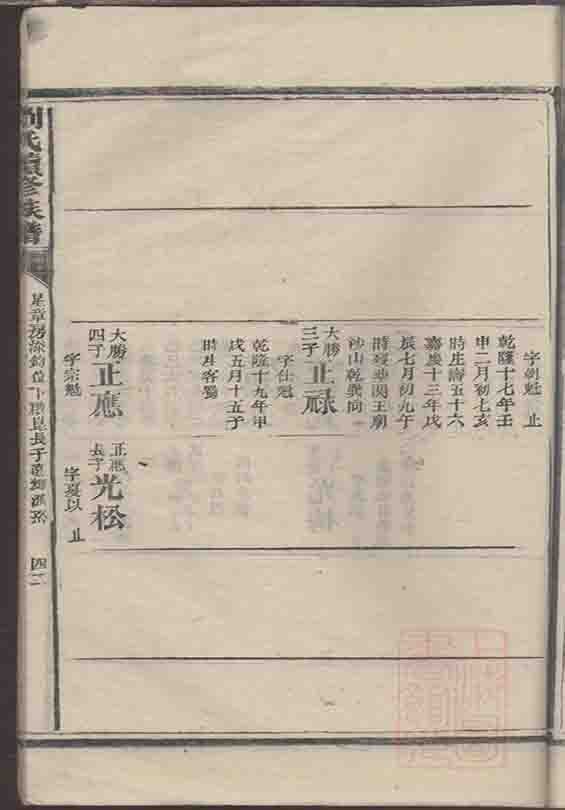 字朝魁 止
乾隆十七年壬
申二月初七亥
時生壽五十六
嘉慶十三年戊
辰七月初九午
時歿葬関王廟
沙山乾巽向
大勝三子 正祿
字仕魁
乾隆十九年甲
戌五月十五子
時生客蜀
大勝四子 正應
字宗魁
正應長子 光松
字夏以 止
氏續修族譜
星章房派 長子 四二